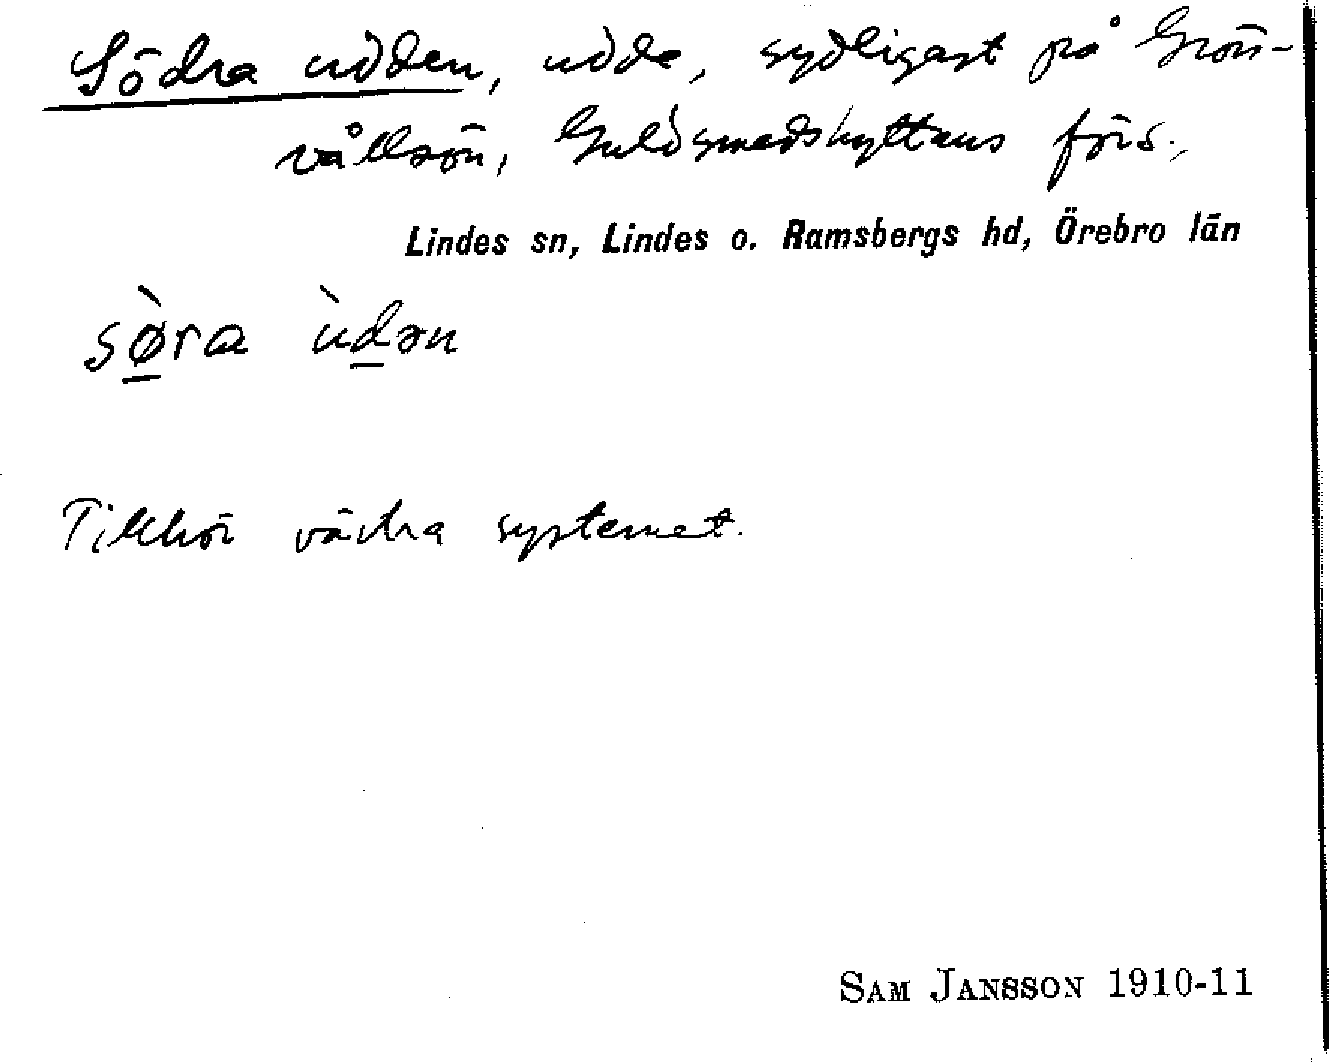 Södra udden, udde, sydligast på Grön-
vållsön, Guldsmedshyttans förs.,
Lindes sn, Lindes o. Ramsbergs hd, Örebro län
sø̀ra ùdən
Tillhör västra systemet.
SAM JANSSON 1910-11